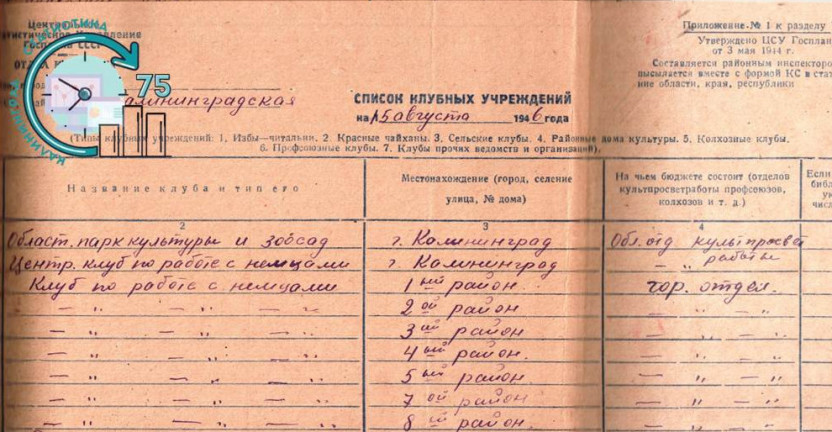 Центральное
статистическое Управление
Госплана СССР
Приложение № 1 к разделу
Утверждено ЦСУ Госплан
от 3 мая 1944 г.
Составляется районным инспекторо
высылается вместе с формой КС в стат
ние области, края, республики
75
КАЛИНИНГРАД
Калининградская
СПИСОК КЛУБНЫХ УЧРЕЖДЕНИЙ
на 15 августа 1946 года
(Типы клубных учреждений: 1. Избы—читальни. 2. Красные чайханы. 3. Сельские клубы. 4. Районные дома культуры. 5. Колхозные клубы.
6. Профсоюзные клубы. 7. Клубы прочих ведомств и организаций).
Название клуба и тип его
Местонахождение (город, селение
улица, № дома)
На чьем бюджете состоит (отделов
культпросветработы профсоюзов,
колхозов и т. д.)
Если
библ
ук
числ
2 3 4
Област. парк культуры и зоосад г. Калининград Обл. отд культпросвет
работы
Центр. клуб по работе с немцами г. Калининград — " —
Клуб по работе с немцами 1ый район гор. отдел.
— " — — " — — " 2ой район — " — "
— " — " — " 3ий район — " — "
— " — " — " 4ый район. — " — "
— " — " — " 5ый район — " — "
— " — " — " 7ой район — " — "
— " — " — " 8ой район. — " — "